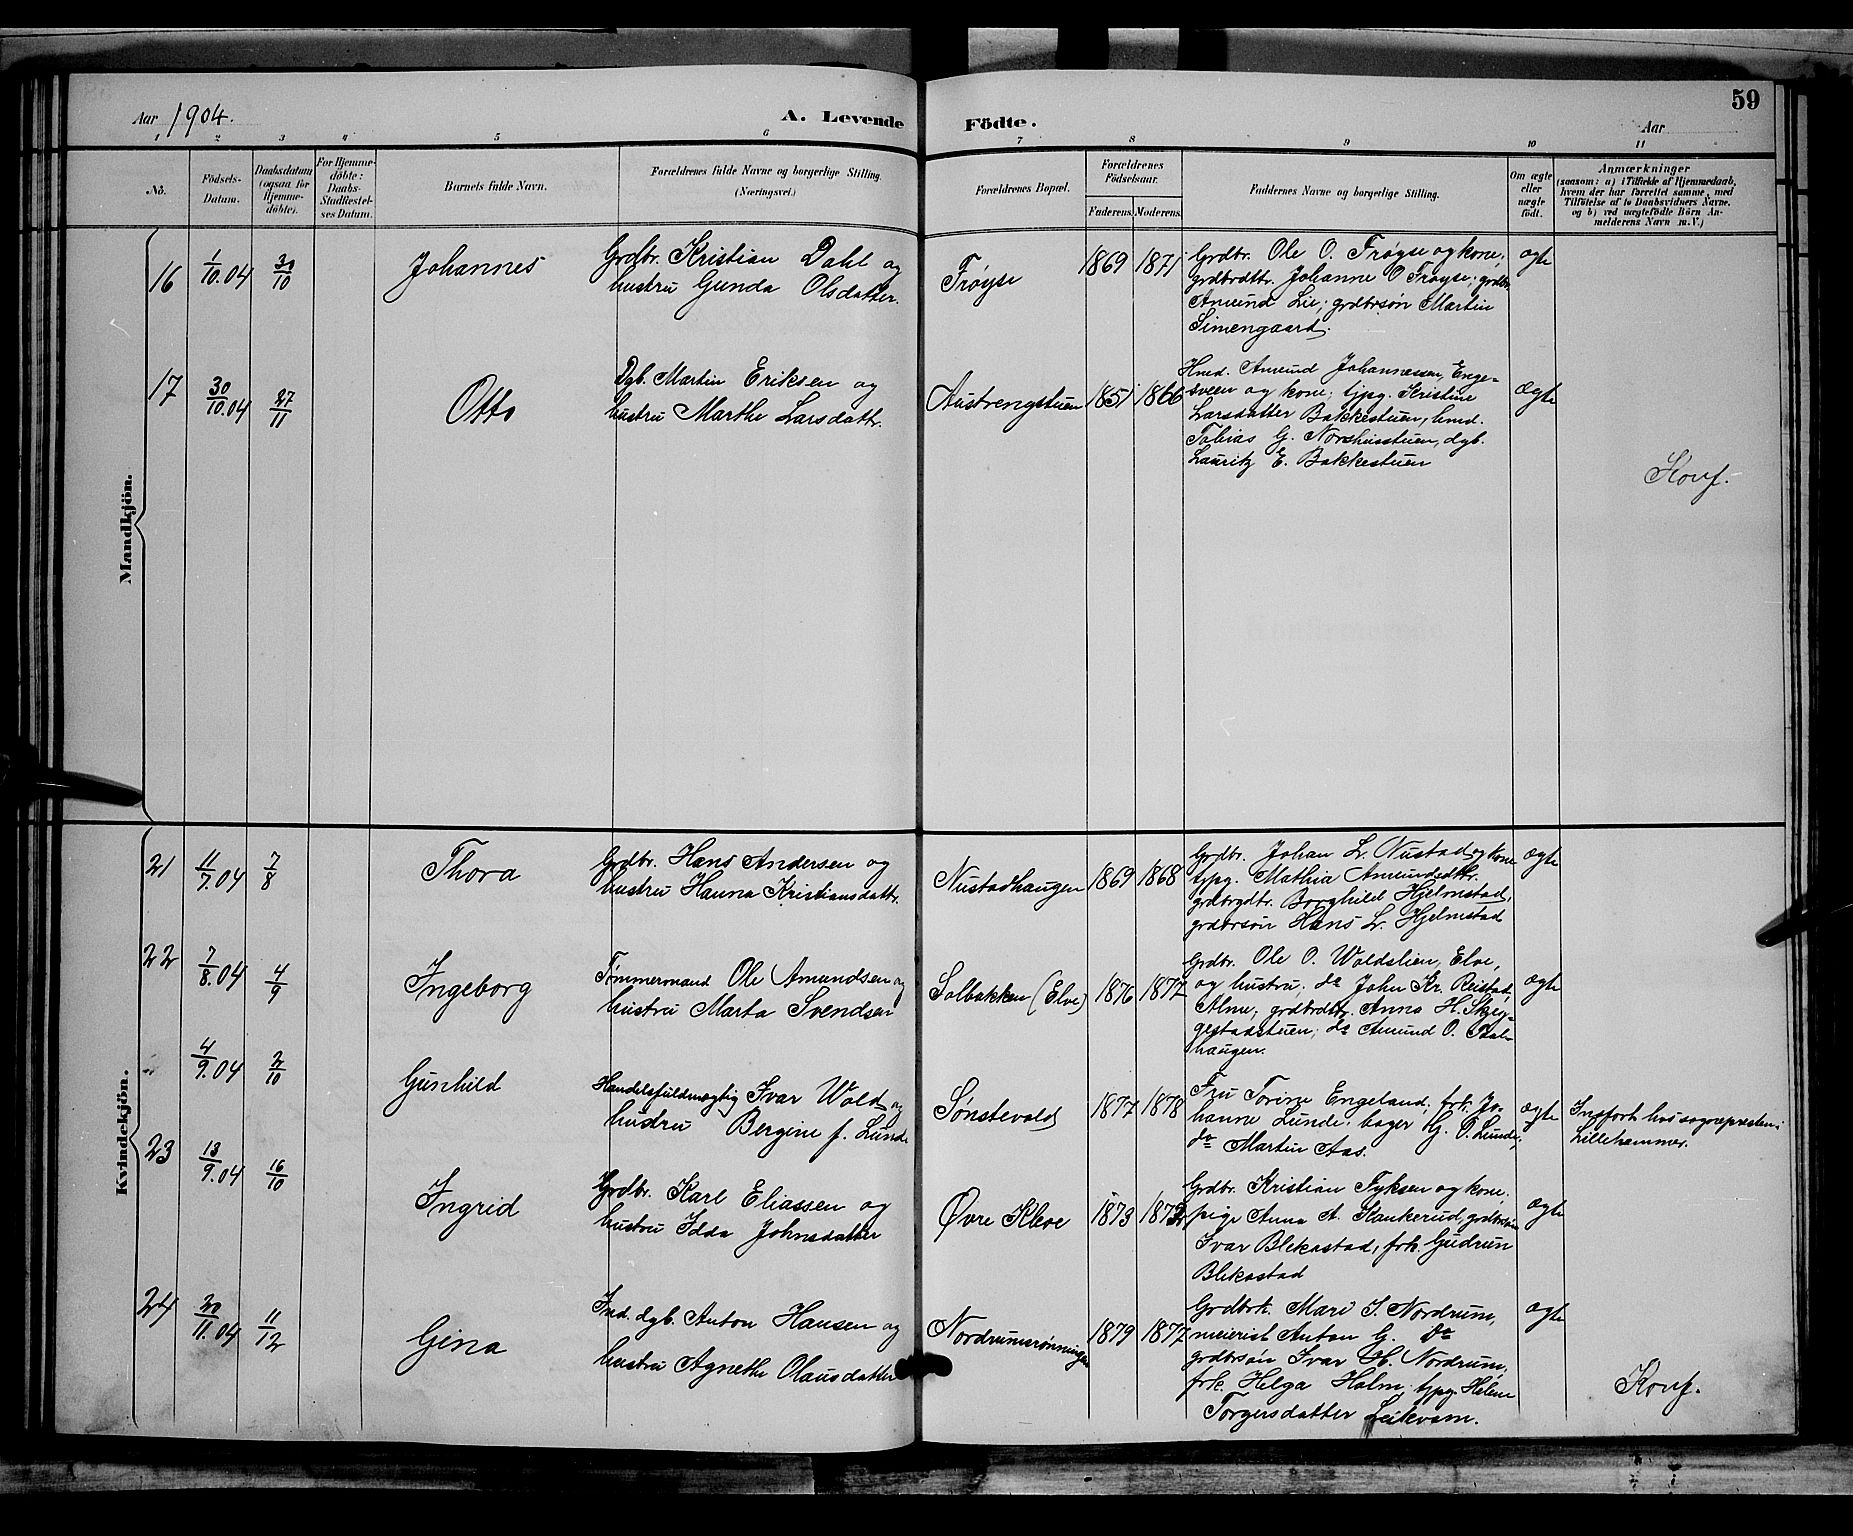 59
Aar 1904.
A. Levende Födte.
Aar
1 2 3 4 5 6 7 8 9 10 11
No.
Födsels-
Datum.
Daabsdatum
(ogsaa for
Hjemme-
döbte).
For Hjemme-
döbte:
Daabs-
Stadfæstel-
ses Datum.
Barnets fulde Navn.
Forældrenes fulde Navne og borgerlige Stilling.
(Næringsvei.)
Forældrenes Bopæl.
Forældrenes
Födselsaar.
Faderens.
Moderens.
Faddernes Navne og borgerlige Stilling.
Om ægte
eller
uægte
födt.
Anmærkninger
(saasom: a) i Tilfælde af Hjemmedaab,
hvem der har forrettet samme, med
Tilföielse af to Daabsvidners Navne.
og b) ved uægtefödte Börn An-
melderens Navn m. V.)
Mandkjön.
16
1/10.04
30/10
Johannes
Grdbr. Kristian Dahl og
hustru Gunda Olsdatter.
Frøyse
1869
1871
Grdbr. Ole O. Frøyse og kone;
grdbrdtr. Johanne O Frøyse; grdbr
Amund Lie; grdbrsøn Martin
Simengaard.
ægte
17
30/10.04
27/11
Otto
Dgb. Martin Eriksen og
hustru Marthe Larsdattr.
Austrengstuen
1851
1866
Hmd. Amund Johannessen, Enge-
sveen og kone; tjpg. Kristine
Larsdatter Bakkestuen, hmd.
Tobias G. Norshusstuen, dgb.
Lauritz E. Bakkestuen
Ægte
Konf.
Kvindekjön.
21
11/7.04
7/8
Thora
Grdbr. Hans Andersen og
hustru Hanna Kristiansdattr.
Nustadhaugen
1869
1868
Grdbr. Johan L. Nustad og kone
tjpg. Mathia Amundsdtr.
grdbrdtr. Borghild Hjelmstad,
grdbrsøn Hans L. Hjelmstad
ægte
22
7/8.04
4/9
Ingeborg
Tømmermand Ole Amundsen og
hustru Marta Svendsen
Solbakken (Elve)
1876
1877
Grdbr. Ole O. Woldslien, Elve,
og hustru; do John Kr. Reistad,
Alme; grdbrdtr. Anna H. Skjeg-
gestadstuen; do Amund O.
haugen.
ægte
4/9.04
2/10
Gunhild
Handelsfuldmægtig Ivar Wold og
hustru Bergine f. Lunde
Sønstevold
1877
1878
Fru Torine Engeland, frk. Jo-
hanne Lunde; bager G. O. Lunde;
do Martin Aas.
ægte
Indført hos sognepresten i
Lillehammer.
23
13/9.04
16/10
Ingrid
Grdbr. Karl Eliassen og
hustru Idda Johnsdatter
Øvre Kleve
1873
Grdbr. Kristian Fyksen og kone;
pige Anna A. Kankerud, grdbrsøn
Ivar Blekastad, frk. Gudrun
Blekastad
ægte
24
20/11.04
11/12
Gina
Ind. dgb. Anton Hansen og
hustru Agnethe Olausdatter
Nordrumsrønningen
1879
1877
Grdbrk. Mari I. Nordrum,
meierist Anton G. do
grdbrsøn Ivar H. Nordrum,
frk. Helga Holm, tjpg. Helene
Torgersdatter Leikvam.
ægte
Konf.